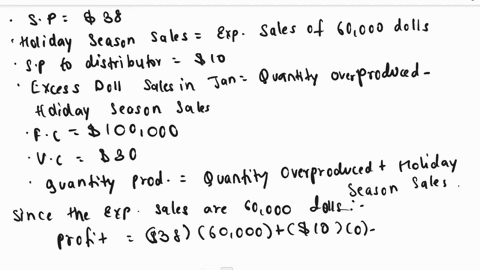 · S.P = $38
· Holiday Season Sales = Exp. Sales of 60,000 dolls
· S.P to distributor = $10
· Excess Doll Sales in Jan = Quantity overproduced -
Holiday Season Sales
· F.C = $100,000
· V.C = $30
· quantity prod. = Quantity Overproduced + Holiday
Season Sales.
Since the Exp. Sales are 60,000 dolls:-
profit = ($38) (60,000) + ($10) (0) -